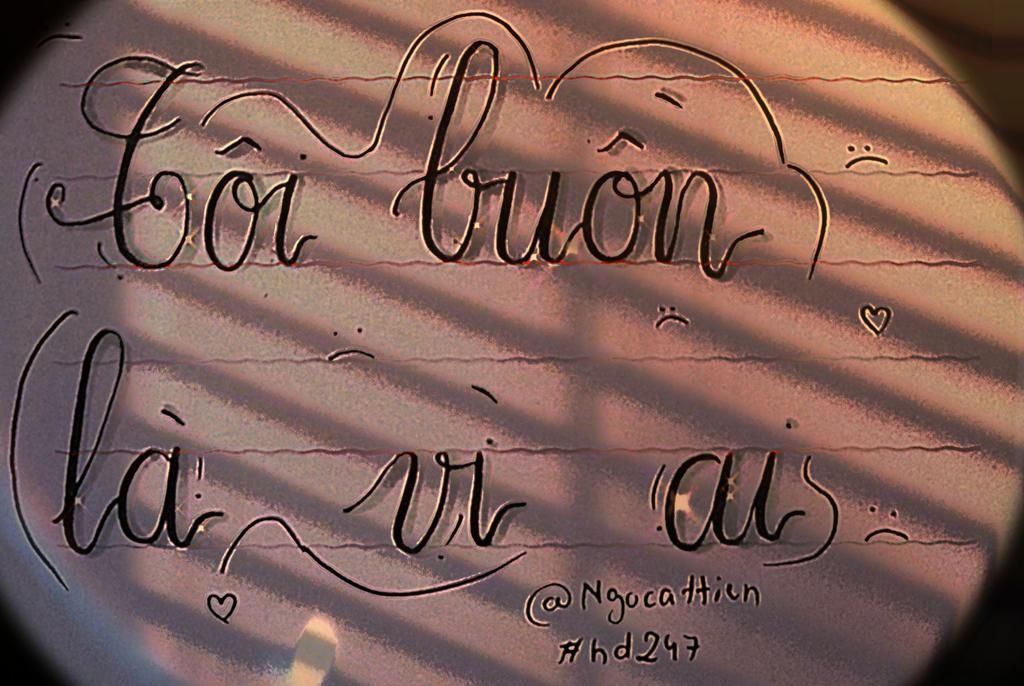 Tôi buồn
là vì ai
@Ngocattien
#hd247